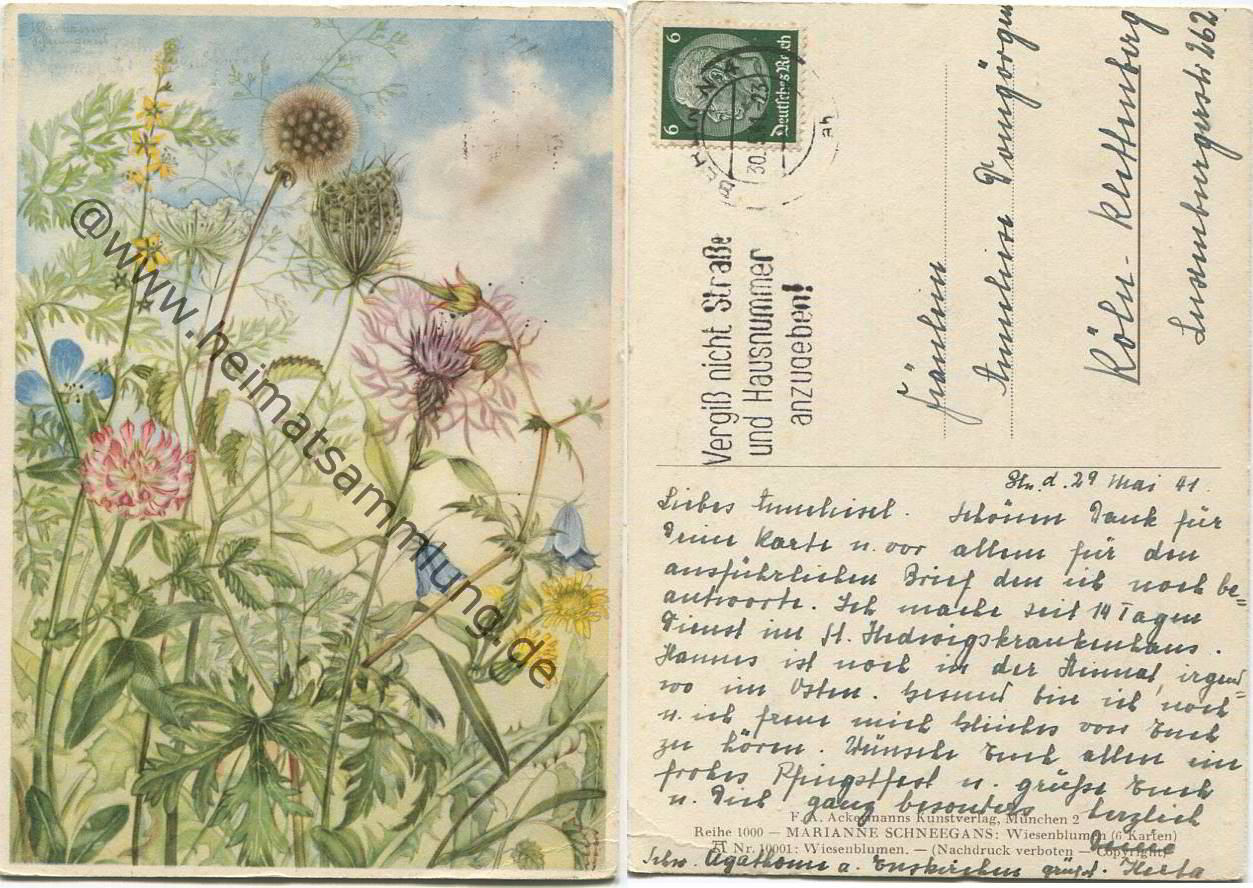 @www.heimatsammlung.de
6 Deutsches Reich 6
Vergiß nicht Straße
und Hausnummer
anzugeben!
Fräulein
Anneliese
Köln-Klettenberg
Luxemburgerstr. 262
29 Mai 41.
Liebes Anneliesel. Schönen Dank für
Deine Karte u. vor allem für den
ausführlichen Brief den ich noch be=
antworte. Ich mache seit 14 Tagen
Dienst im St. Hedwigskrankenhaus.
Hannes ist noch in der irgend=
wo im Osten. Gesund bin ich noch
u. ich freue mich Gleiches von Euch
zu hören. Wünsche Euch allen ein
frohes Pfingstfest u. grüße Euch
u. Dich ganz besonders herzlich
Deine
F. A. Ackermanns Kunstverlag, München 2
Reihe 1000 — MARIANNE SCHNEEGANS: Wiesenblumen (6 Karten)
Nr. 10001: Wiesenblumen. — (Nachdruck verboten — Copyright)
Schw. Agathona a. Euskirchen grüßt. Herta